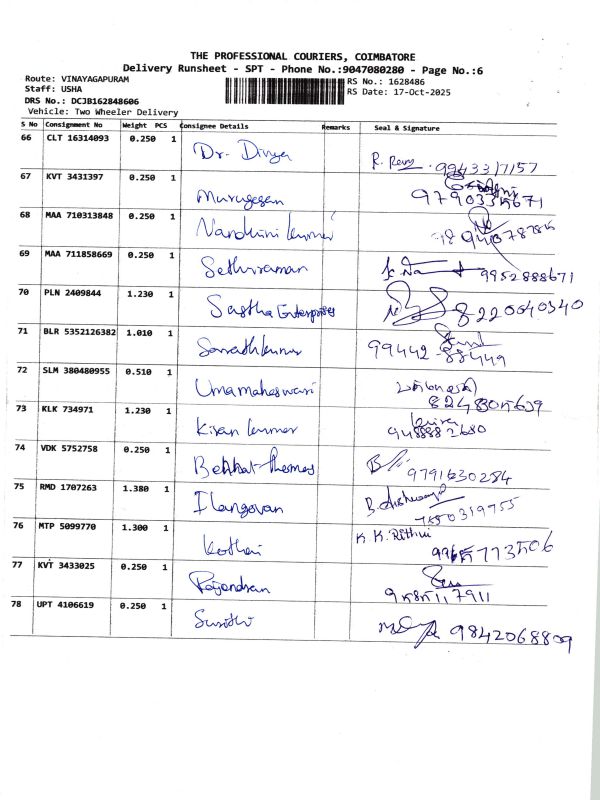 THE PROFESSIONAL COURIERS, COIMBATORE
Delivery Runsheet - SPT - Phone No.:9047080280 - Page No.:6
Route: VINAYAGAPURAM
RS No.: 1628486
Staff: USHA
RS Date: 17-Oct-2025
DRS No.: DCJB162848606
Vehicle: Two Wheeler Delivery
S No Consignment No Weight PCS Consignee Details Remarks Seal & Signature
66 CLT 16314093 0.250 1 Dr. Divya 9943317157
67 KVT 3431397 0.250 1 Murugesan
68 MAA 710313848 0.250 1 Nandhini kumar
69 MAA 711858669 0.250 1 Sethuraman 9952888671
70 PLN 2409844 1.230 1 Sastha Enterprises 8220640340
71 BLR 5352126382 1.010 1 Sarathkumar 99442-88449
72 SLM 380480955 0.510 1 Umamaheswari
73 KLK 734971 1.230 1 Kiran kumar
74 VDK 5752758 0.250 1
75 RMD 1707263 1.380 1 Ilangovan
76 MTP 5099770 1.300 1 Kothai K K. Rithini
77 KVT 3433025 0.250 1 Rajendran
78 UPT 4106619 0.250 1 9842068809